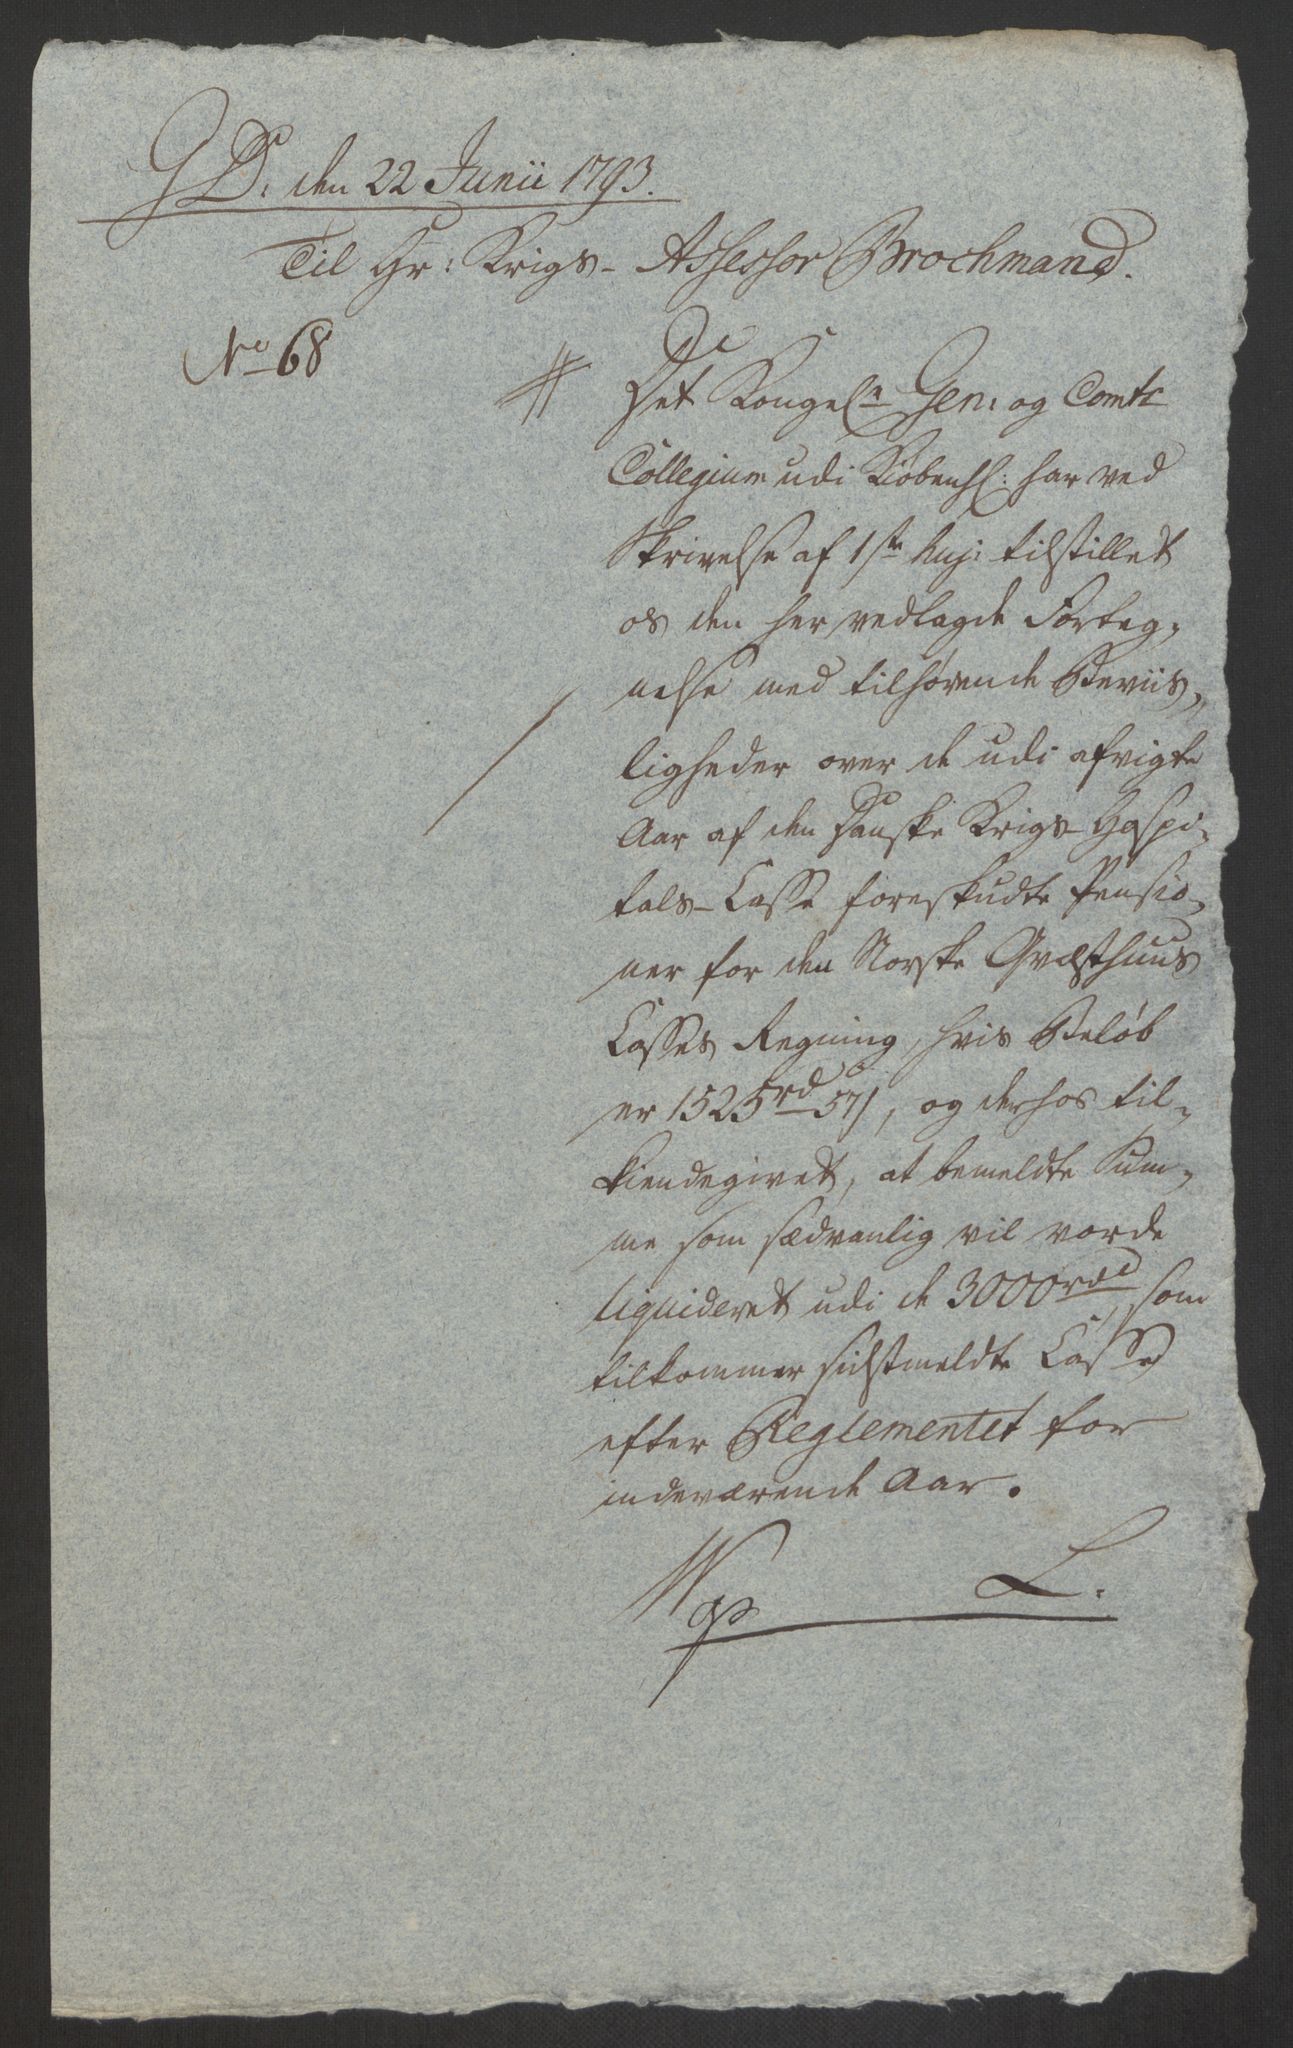 G D. den 22 Junii 1793.
Til Hr: Krigs-Assessor Brochmand.
No 68
Det Kongel. Gen: og Comts
Collegium udi Kiøbenh: har ved
Skrivelse af 1ste huj: tilstillet
os den her vedlagde Forteg-
nelse med tilhørende Beviis-
ligheder over de udi afvigte
Aar af den danske Krigs-Hospi-
tals-Casse foreskudte Pensio-
ner for den Norske Qvæsthuus
Casses Regning, hvis Beløb
er 1525 rd 57 s, og derhos til-
kiendegivet, at bemeldte Sum-
me som sædvanlig vil vorde
liquideret udi de 3000 rdr, som
tilkommer sidstmeldte Casse
efter Reglementet for
indeværende Aar.
L.